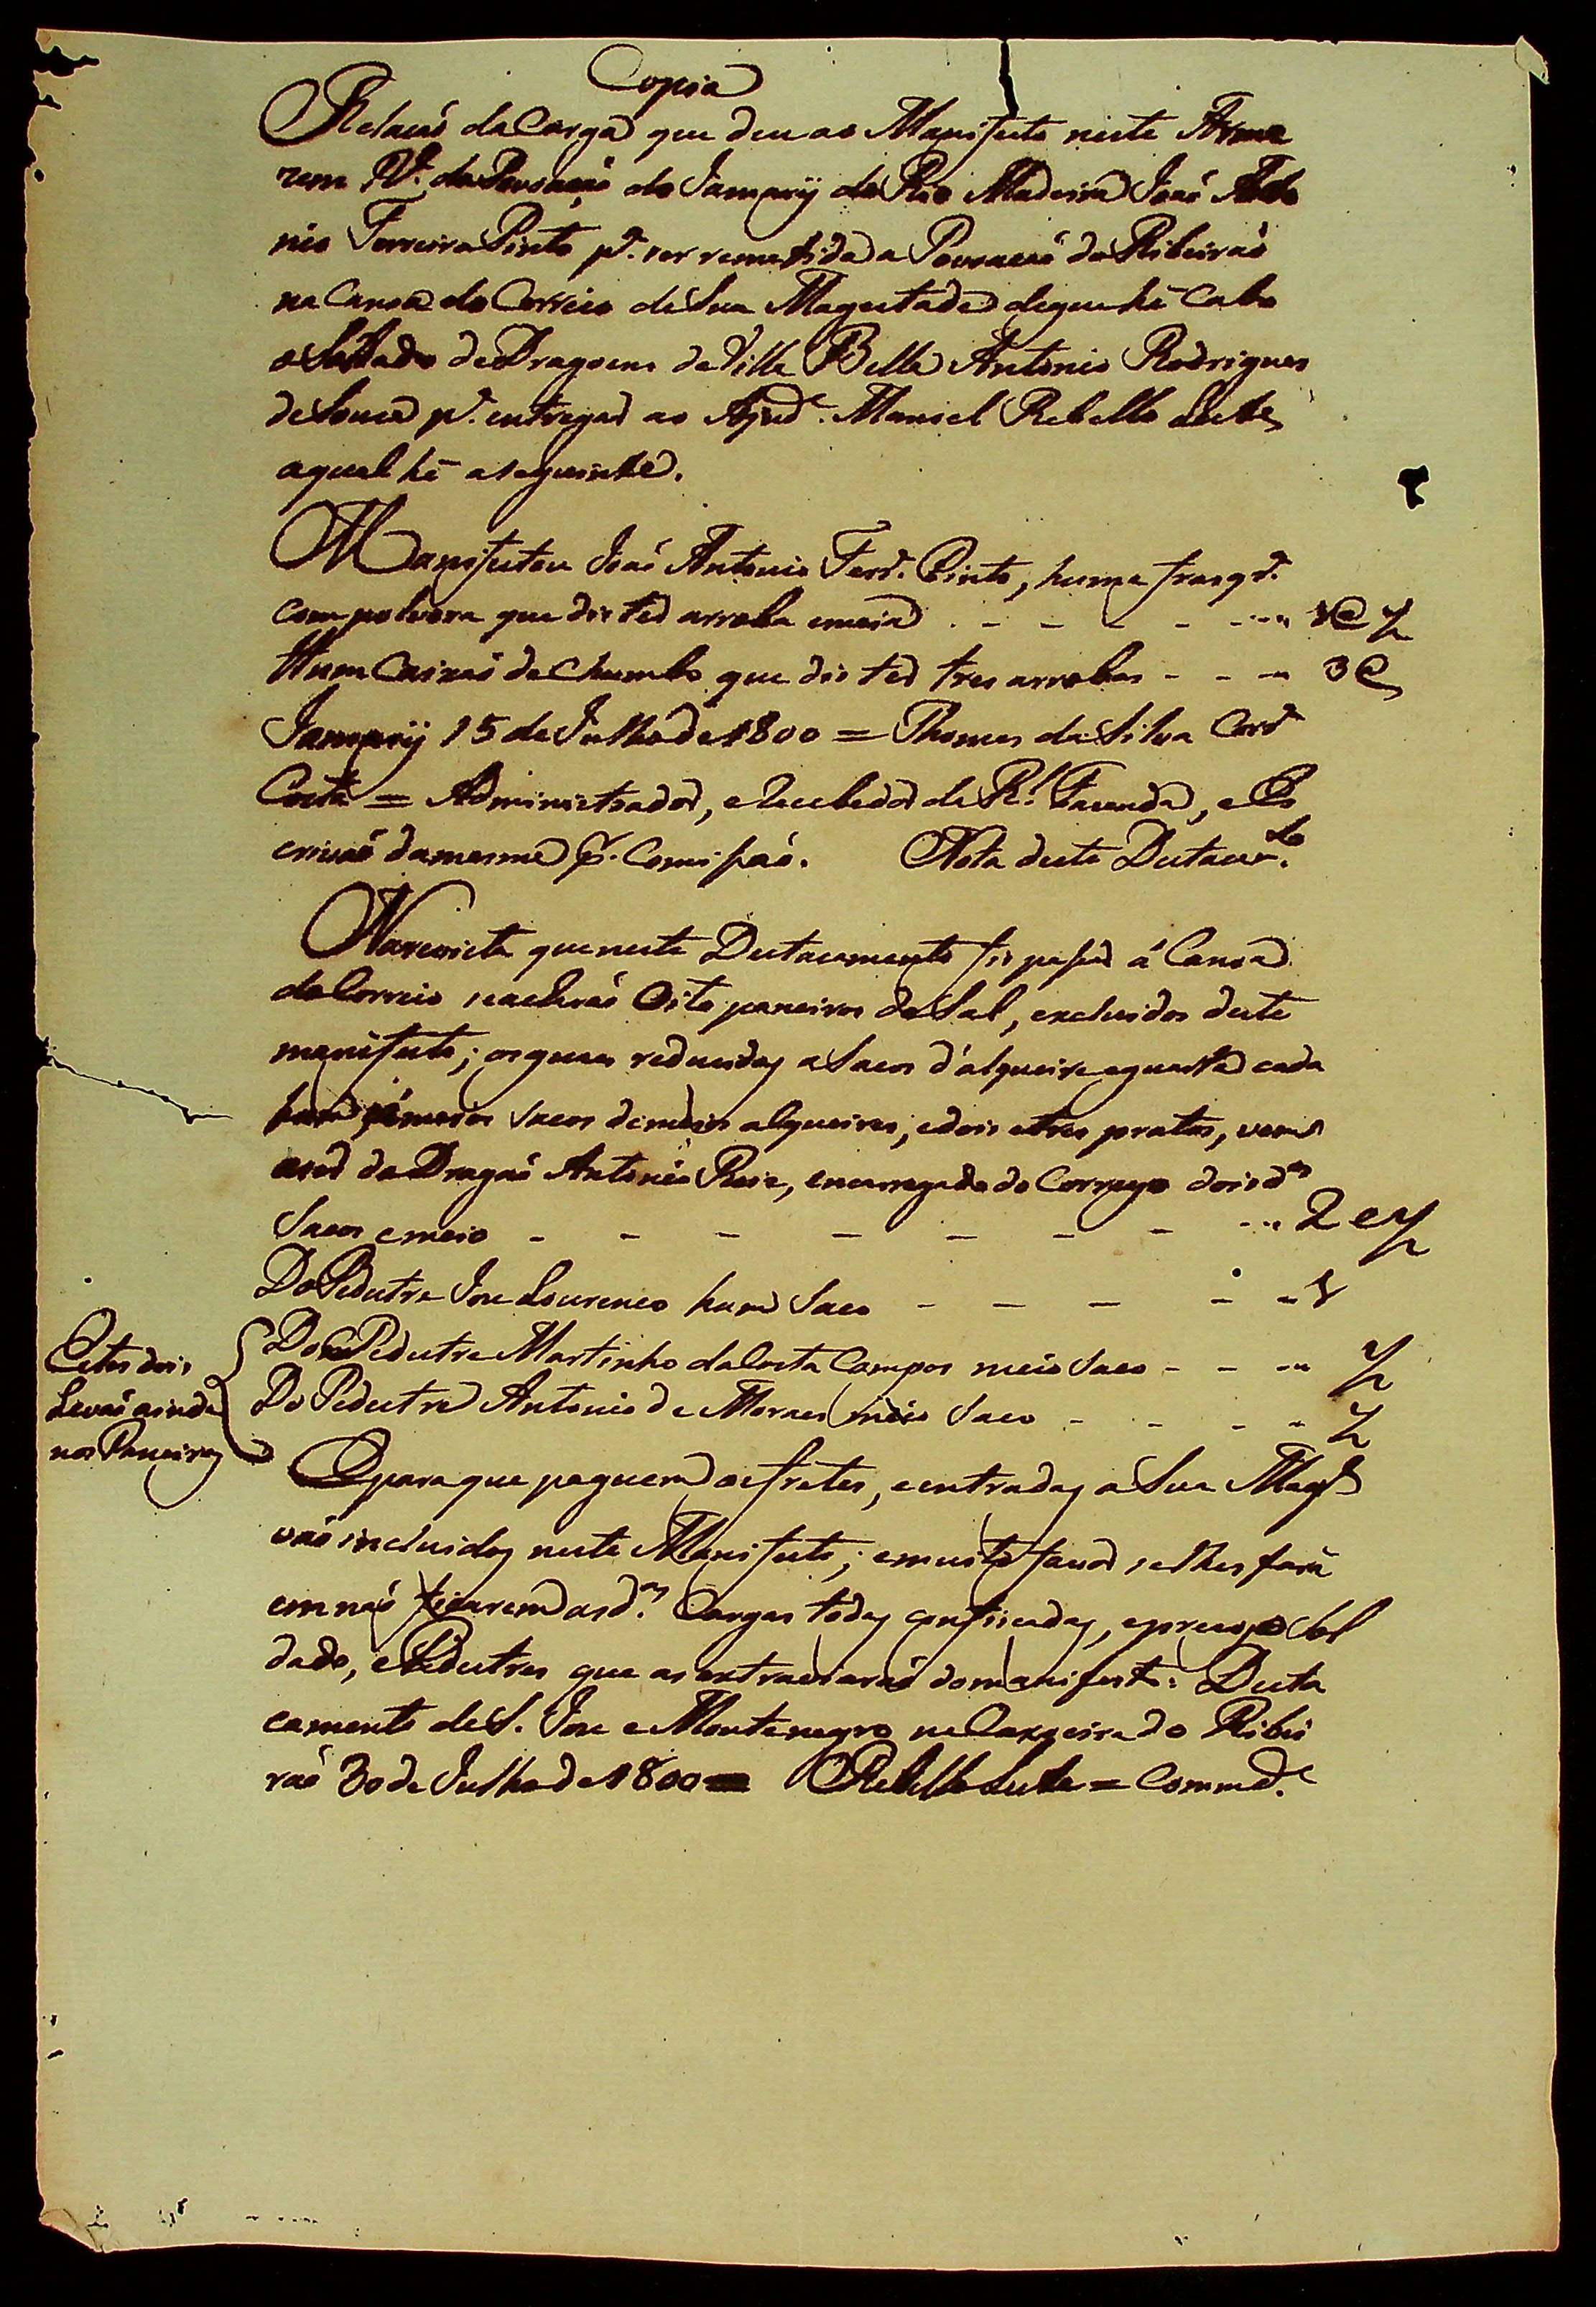 Copia
Relacaõ da Carga que deu ao Manifesto neste Arma
zem Rl. da Povoação do Jamary do Rio Madeira João Anto
nio Ferreira Pinto pa. ser remetida a Povoacaõ do Ribeiraõ
na Canoa do Correio de Sua Magestade de que hé Cabo
o Soldado de Dragoens de Villa Bella Antonio Rodrigues
de Souza pa. entregar ao Ajude. Manoel Rebello Leite
a qual hé a seguinte.
Manifestou Joaõ Antonio Ferra. Pinto, huma frasqra.
com polvora que diz ter arroba e meia 1@ ½
Hum Caixaõ de Chumbo que diz ter tres arrobas 3@
Jamary 15 de Julho de 1800 = Thomas da Silva
Costa = Administrador, e Recebedor da Rl. Fazenda, e Es
crivaõ da mesma por Comissaõ. Nota deste Destacamto.
Na revista que neste Destacamento fis passar á Canoa
do Correio se acharaõ Oito paneiros de Sal, excluidos deste
manifesto; os quaes reduzidos a Sacos d'alqueire e quarta cada
hum saos de meios alqueires, e dois e tres pratos, vem
a ser do Dragaõ Antonio Roiz, encarregado do Correyo dois dos
Sacos e meio 2 e ½
Do Pedestre Joze Lourenco hum Saco 1
Do Pedestre Martinho da Costa Campos meio Saco ½
Do Pedestre Antonio de Moraes meio Saco ½
Estes dois
Levaõ ainda
nos Paneiros
E para que paguem os fretes, e entradas a Sua Magde
vaõ incluidos neste Manifesto; e muito favor se lhes fará
em naõ ficarem as ds. Cargas todas confiscadas, e prezo o Sol
dado, e Pedestres que as extraviaraõ do manifesto: Desta
camento de S. Joze e Montenegro na Caxoeira do Ribei
raõ 30 de Julho de 1800 = Rebello Leite = Commde.